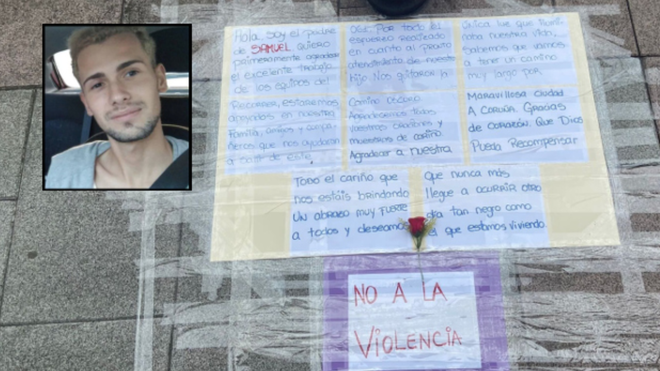 Hola, soy el padre
de SAMUEL quiero
primeramente agradecer
el excelente trabajo
de los equipos del
por todo el
esfuerzo realizado
en cuanto al pronto
atendimento de nuestro
hijo Nos quitaron la
única luz que
nuestra vida,
Sabemos que vamos
a tener un camino
muy largo por
Recorrer, estaremos
apoyados en nuestra
Familia, amigos y
que nos ayudaran
a salir de este
Camino oscuro
Agradecemos todas
vuestras oraciones y
muestras de cariño.
Agradecer a nuestra
Maravillosa ciudad
A Coruña. Gracias
de corazón. Que Dios
Pueda Recompensar
Todo el cariño que
nos estáis brindando
Un abrazo muy fuerte
a todos y deseamos
que nunca más
llegue a ocurrir otro
día tan negro como
el que estamos viviendo.
NO A LA
VIOLENCIA